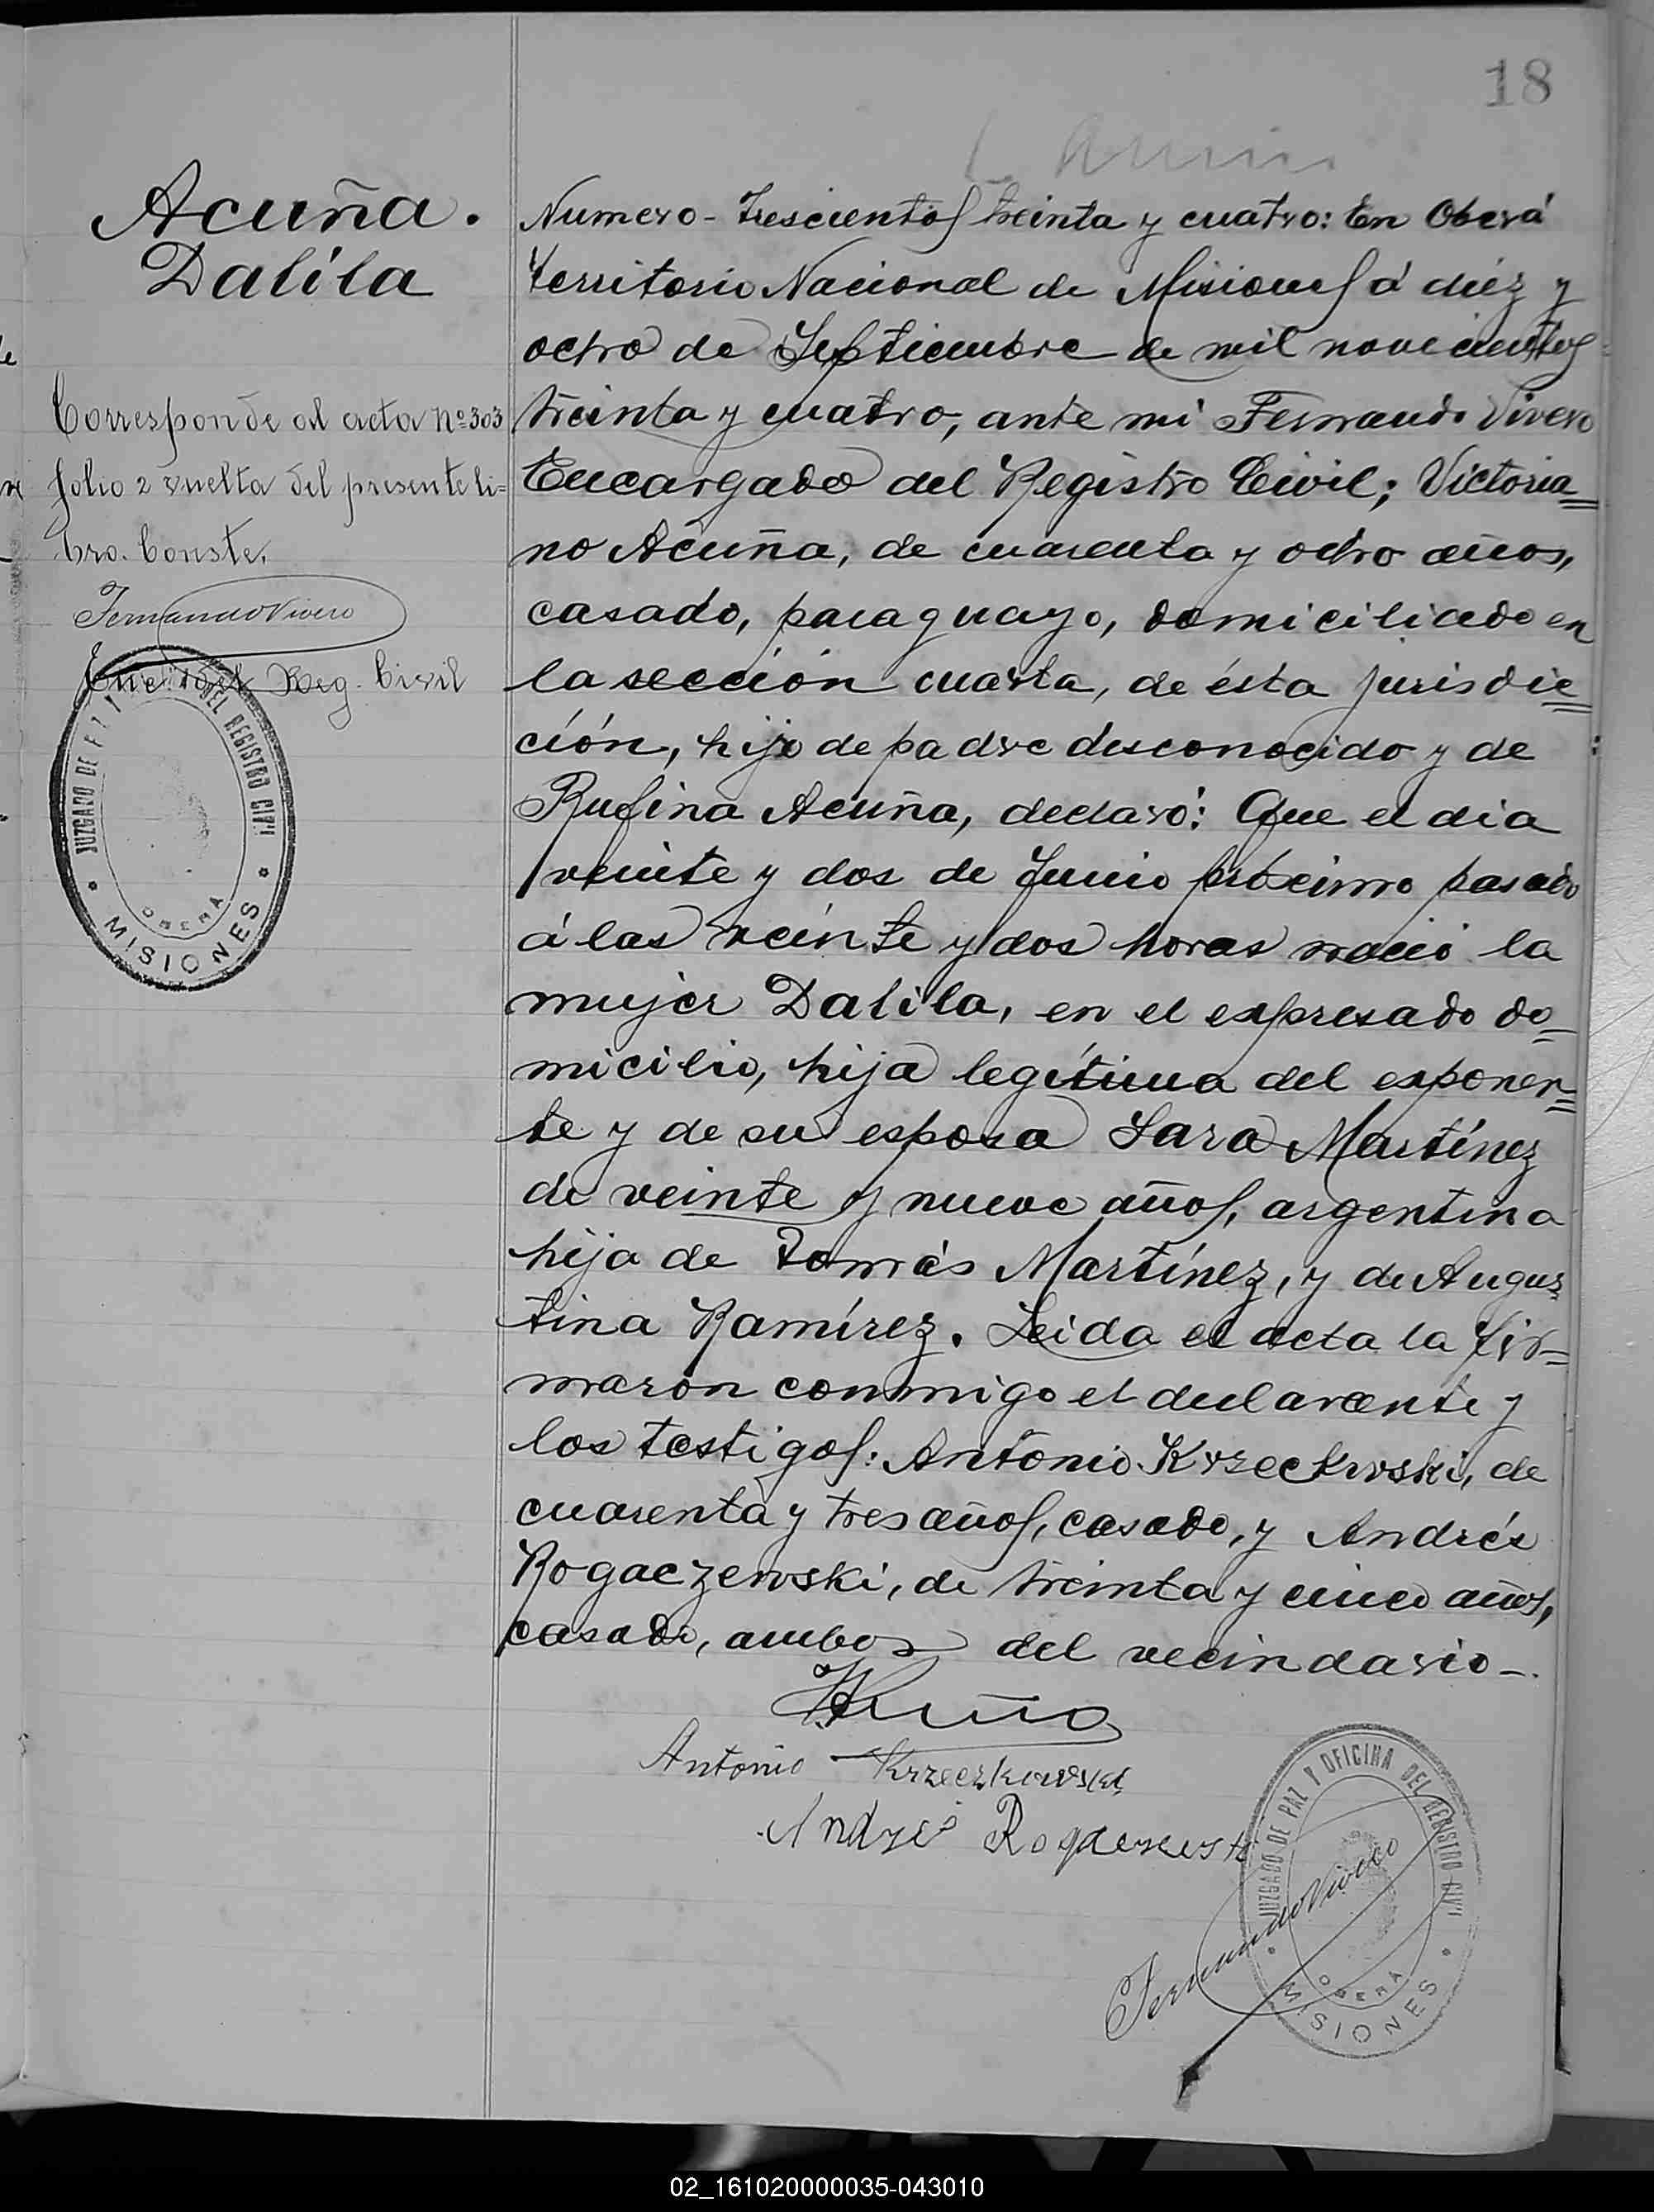 18
Acuña.
Dalila
Corresponde al acta nº 303
folio 2 vuelta del presente li=
bro. Conste.
Fernando Vivero
Enc. del Reg. Civil
JUZGADO DE PAZ Y DEL REGISTRO CIVIL
OBERA
MISIONES
Numero - Trescientos treinta y cuatro: En Oberá
territorio Nacional de Misiones á diéz y
ocho de Septiembre de mil novecientos
treinta y cuatro, ante mi Fernando Vivero
Encargado del Registro Civil; Victoria=
no Acuña, de cuarenta y ocho años,
casado, paraguayo, domiciliado en
la sección cuarta, de ésta jurisdic=
ción, hijo de padre desconocido y de
Rufina Acuña, declaró: Que el dia
veinte y dos de Junio próximo pasado
á las veinte y dos horas nació la
mujer Dalila, en el expresado do=
micilio, hija legítima del exponen=
te y de su esposa Sara Martínez
de veinte y nueve años, argentina
hija de Tomás Martínez, y de Augus=
tina Ramírez. Leida el acta la fir=
marón conmigo el declarante y
los testigos: Antonio Krzeckwski, de
cuarenta y tres años, casado, y Andrés
Rogaczewski, de treinta y cinco años,
casado, ambos del vecindario -.
VAcuña
Antonio Krzeczkowski
Andrés
JUZGADO DE PAZ Y OFICINA DEL REGISTRO CIVIL
OBERA
MISIONES
Fernando Vivero
02_161020000035-043010